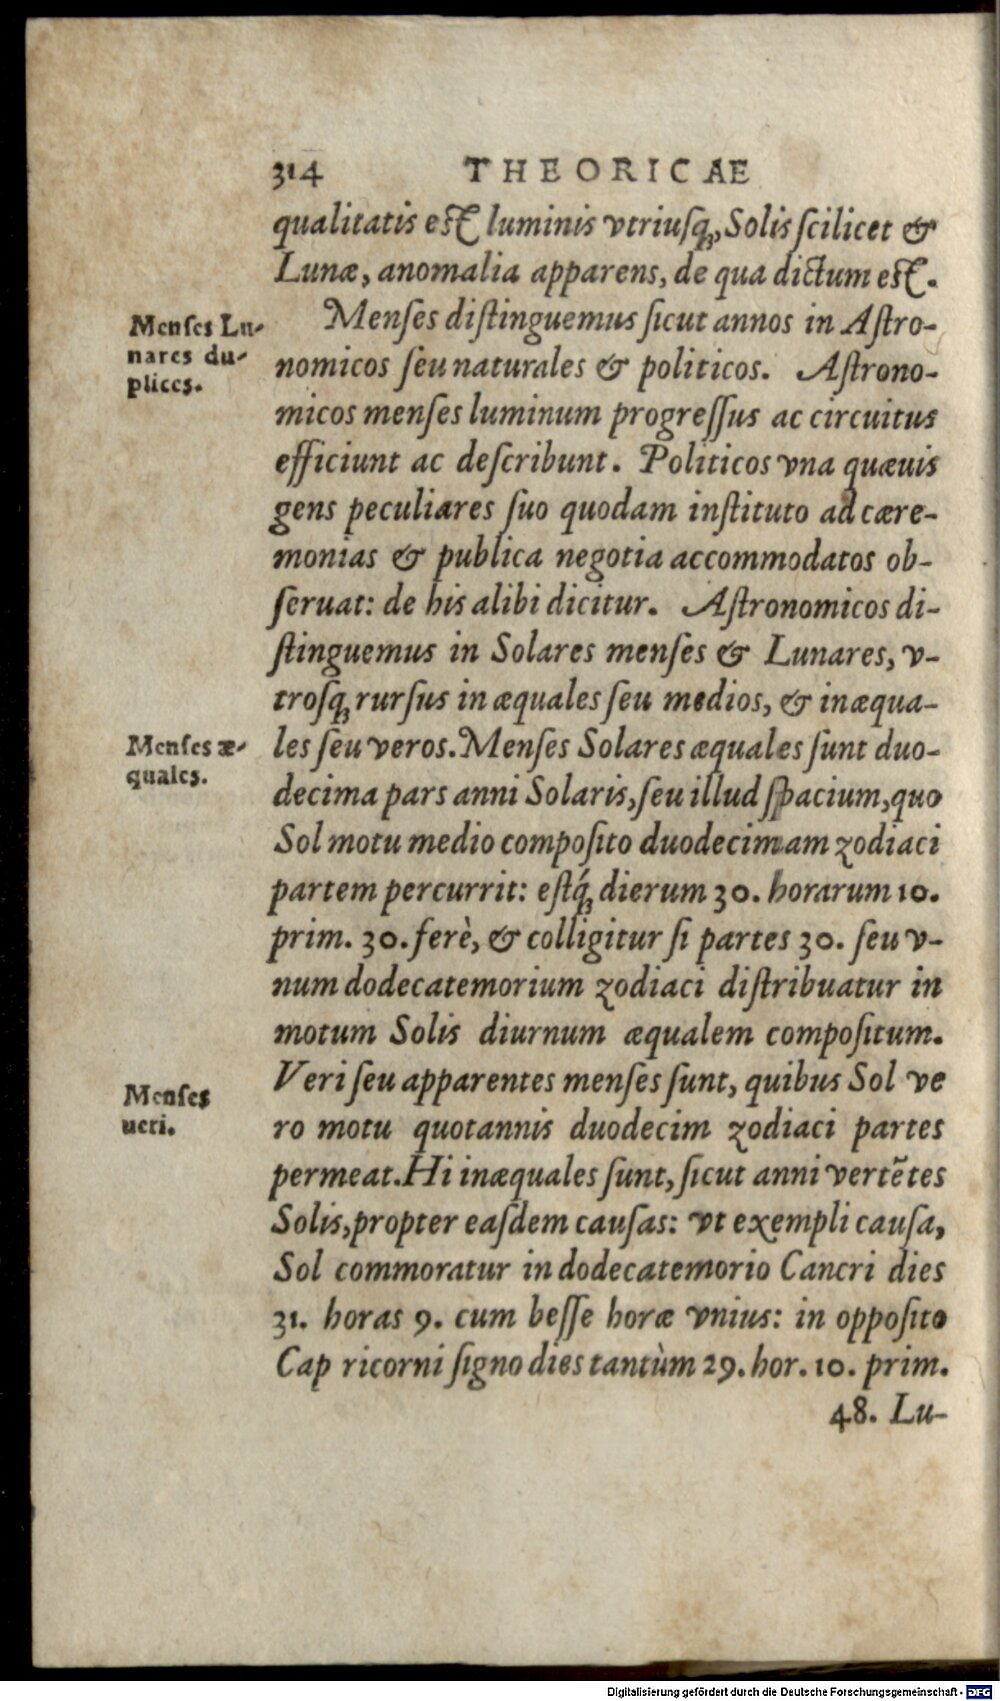 314 THEORICAE
qualitatis est luminis vtriusq́ꝫ, Solis scilicet &
Lunæ, anomalia apparens, de qua dictum est.
Menses Lu-
nares du-
plices.
Menſes diſtinguemus ſicut annos in Aſtro-
nomicos ſeu naturales & politicos. Aſtrono-
micos menſes luminum progreſſus ac circuitus
efficiunt ac deſcribunt. Politicos vna quæuis
gens peculiares ſuo quodam inſtituto ad cære-
monias & publica negotia accommodatos ob-
ſeruat: de his alibi dicitur. Aſtronomicos di-
ſtinguemus in Solares menſes & Lunares, v-
troſqꝫ rurſus in æquales ſeu medios, & inæqua-
Menſes æ-
quales.
les ſeu veros. Menſes Solares æquales ſunt duo-
decima pars anni Solaris, ſeu illud ſpacium, quo
Sol motu medio compoſito duodecimam zodiaci
partem percurrit: eſtq́ꝫ dierum 30. horarum 10.
prim. 30. ferè, & colligitur ſi partes 30. ſeu v-
num dodecatemorium zodiaci diſtribuatur in
motum Solis diurnum æqualem compoſitum.
Menſes
ueri.
Veri ſeu apparentes menſes ſunt, quibus Sol ve
ro motu quotannis duodecim zodiaci partes
permeat. Hi inæquales ſunt, ſicut anni vertẽtes
Solis, propter eaſdem cauſas: vt exempli cauſa,
Sol commoratur in dodecatemorio Cancri dies
31. horas 9. cum beſſe horæ vnius: in oppoſito
Cap ricorni ſigno dies tantùm 29. hor. 10. prim.
48. Lu-
Digitalisierung gefördert durch die Deutsche Forschungsgemeinschaft - DFG